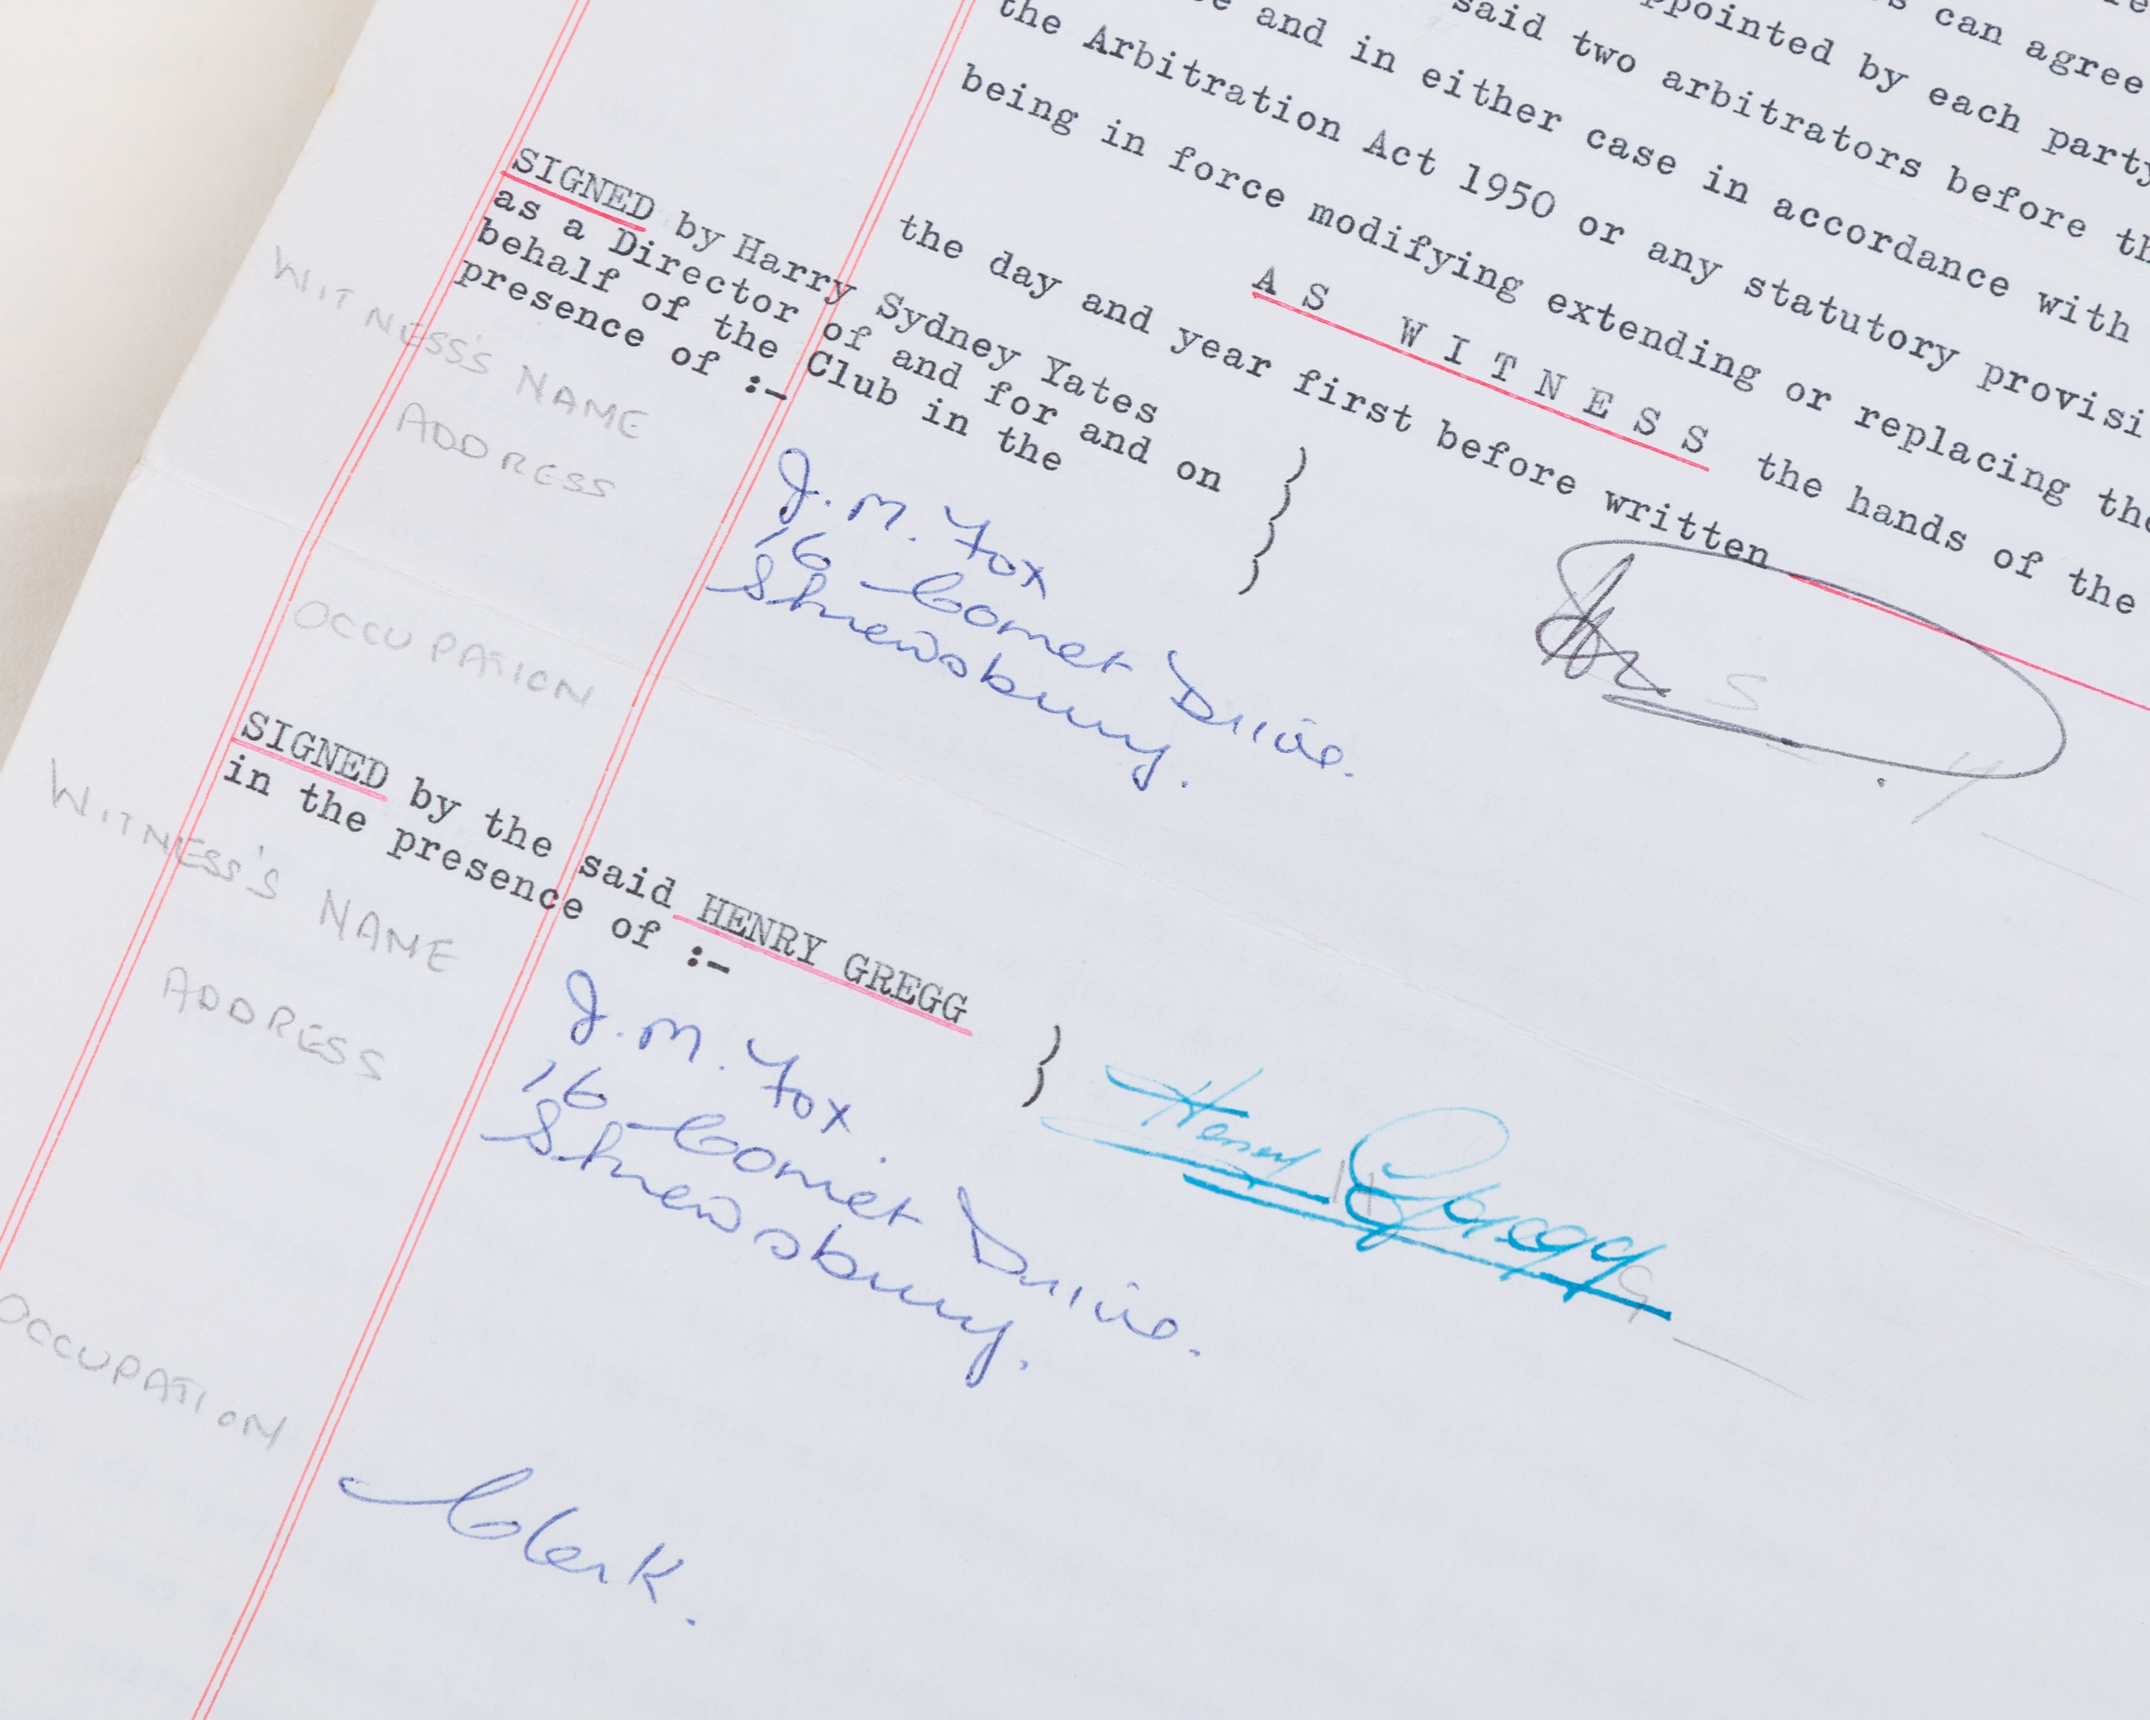 can agree
appointed by each party
said two arbitrators before th
and in either case in accordance with
the Arbitration Act 1950 or any statutory provisi
being in force modifying extending or replacing the
A S W I T N E S S the hands of the
the day and year first before written
SIGNED by Harry Sydney Yates
as a Director of and for and on
behalf of the Club in the
presence of :-
}
WITNESS'S NAME J. M. Fox
ADDRESS 16 Comet Drive.
Shrewsbury.
OCCUPATION
SIGNED by the said HENRY GREGG
in the presence of :-
} Henry Gregg
WITNESS'S NAME J. M. Fox.
ADDRESS 16 Comet Drive.
Shrewsbury.
OCCUPATION Clerk.